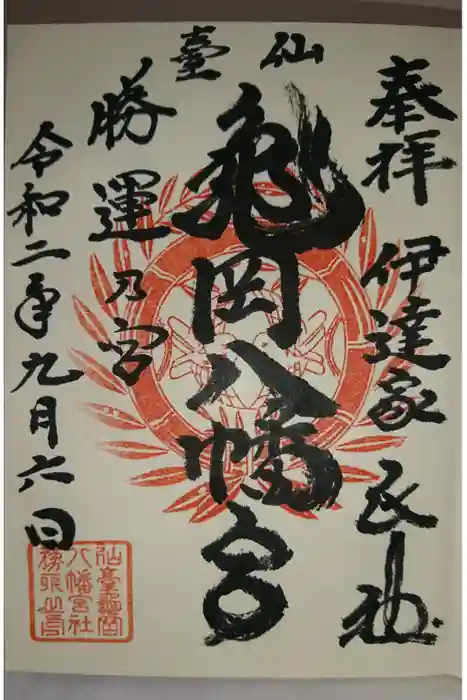 奉拝 伊達家 氏神
仙臺
亀岡八幡宮
勝運乃宮
令和二年九月六日
仙臺龜岡
八幡宮社
務所之印